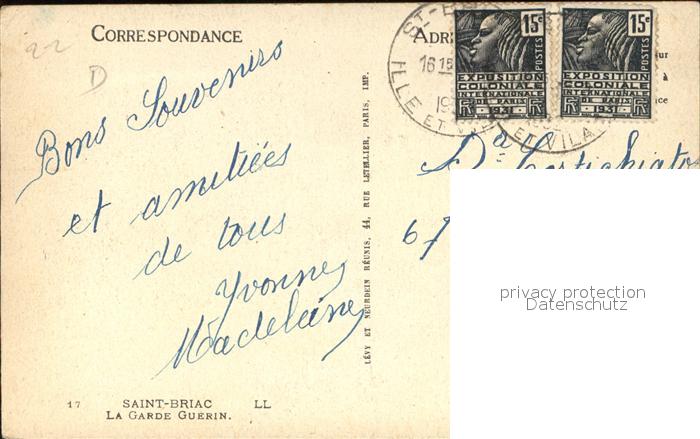 22
D
CORRESPONDANCE
Bons Souvenirs
et amitiées
de tous
Yvonne
Madeleine
17 SAINT-BRIAC LL
LA GARDE GUERIN.
LÉVY ET NEURDEIN RÉUNIS, 44, RUE LETELLIER, PARIS, IMP.
ADR
15c 15c
POSTES POSTES
EXPOSITION EXPOSITION
COLONIALE COLONIALE
INTERNATIONALE INTERNATIONALE
DE PARIS DE PARIS
RF 1931 RF RF 1931 RF
16 15
19
ILLE ET VILA
ET VILA
à
67
privacy protection
Datenschutz